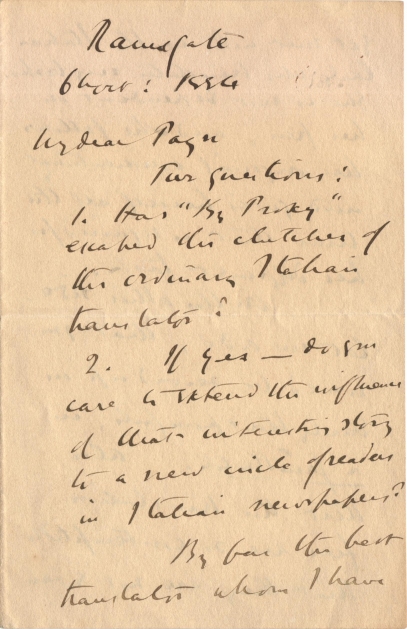 Ramsgate
6 Octr: 1884
My dear Payn
Two questions:
1. Has "By Proxy"
escaped the clutches of
the ordinary Italian
translator?
2. If yes — do you
care to extend the influence
of that interesting story
to a new circle of readers
in Italian newspapers?
By far the best
translator whom I have